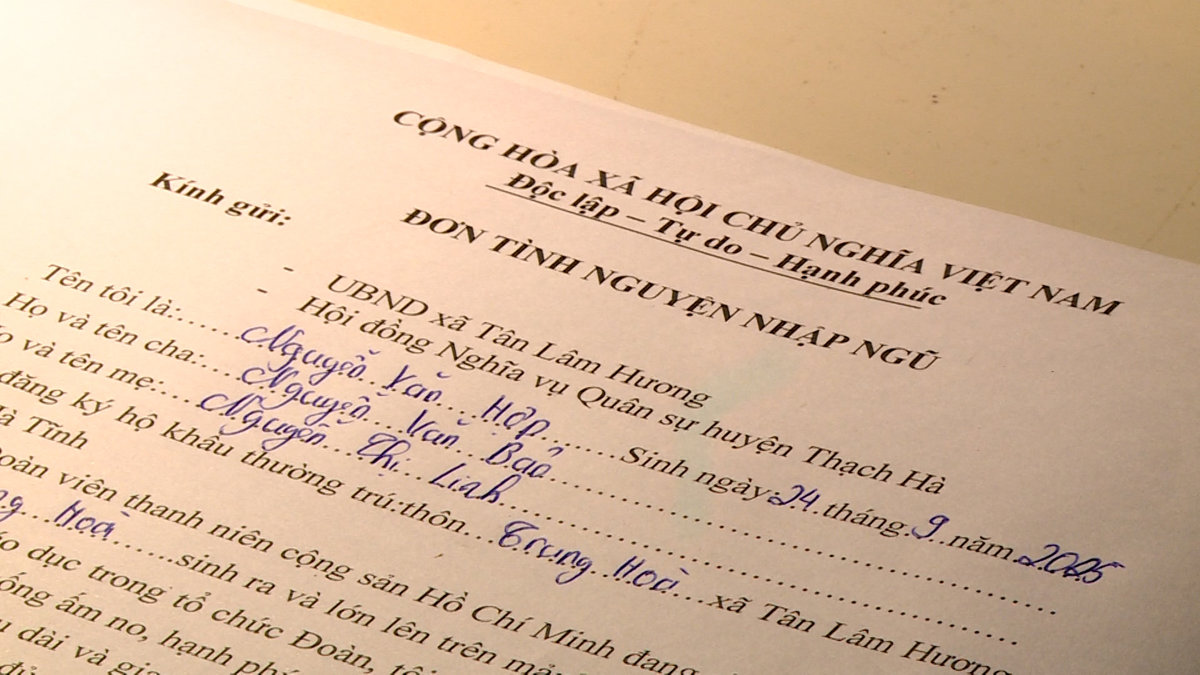 CỘNG HÒA XÃ HỘI CHỦ NGHĨA VIỆT NAM
Độc lập – Tự do – Hạnh phúc
ĐƠN TÌNH NGUYỆN NHẬP NGŨ
Kính gửi:
- UBND xã Tân Lâm Hương
- Hội đồng Nghĩa vụ Quân sự huyện Thạch Hà
Tên tôi là:......Nguyễn Văn Hợp......Sinh ngày 24 tháng 9 năm 2025
Họ và tên cha:....Nguyễn Văn Bảo......
và tên mẹ:....Nguyễn Thị Linh......
đăng ký hộ khẩu thường trú:thôn...Trung Hoà...xã Tân Lâm Hương
Hà Tĩnh
viên thanh niên cộng sản Hồ Chí Minh đang
Hoà......sinh ra và lớn lên trên
dục trong tổ chức Đoàn,
ấm no, hạnh
dài và